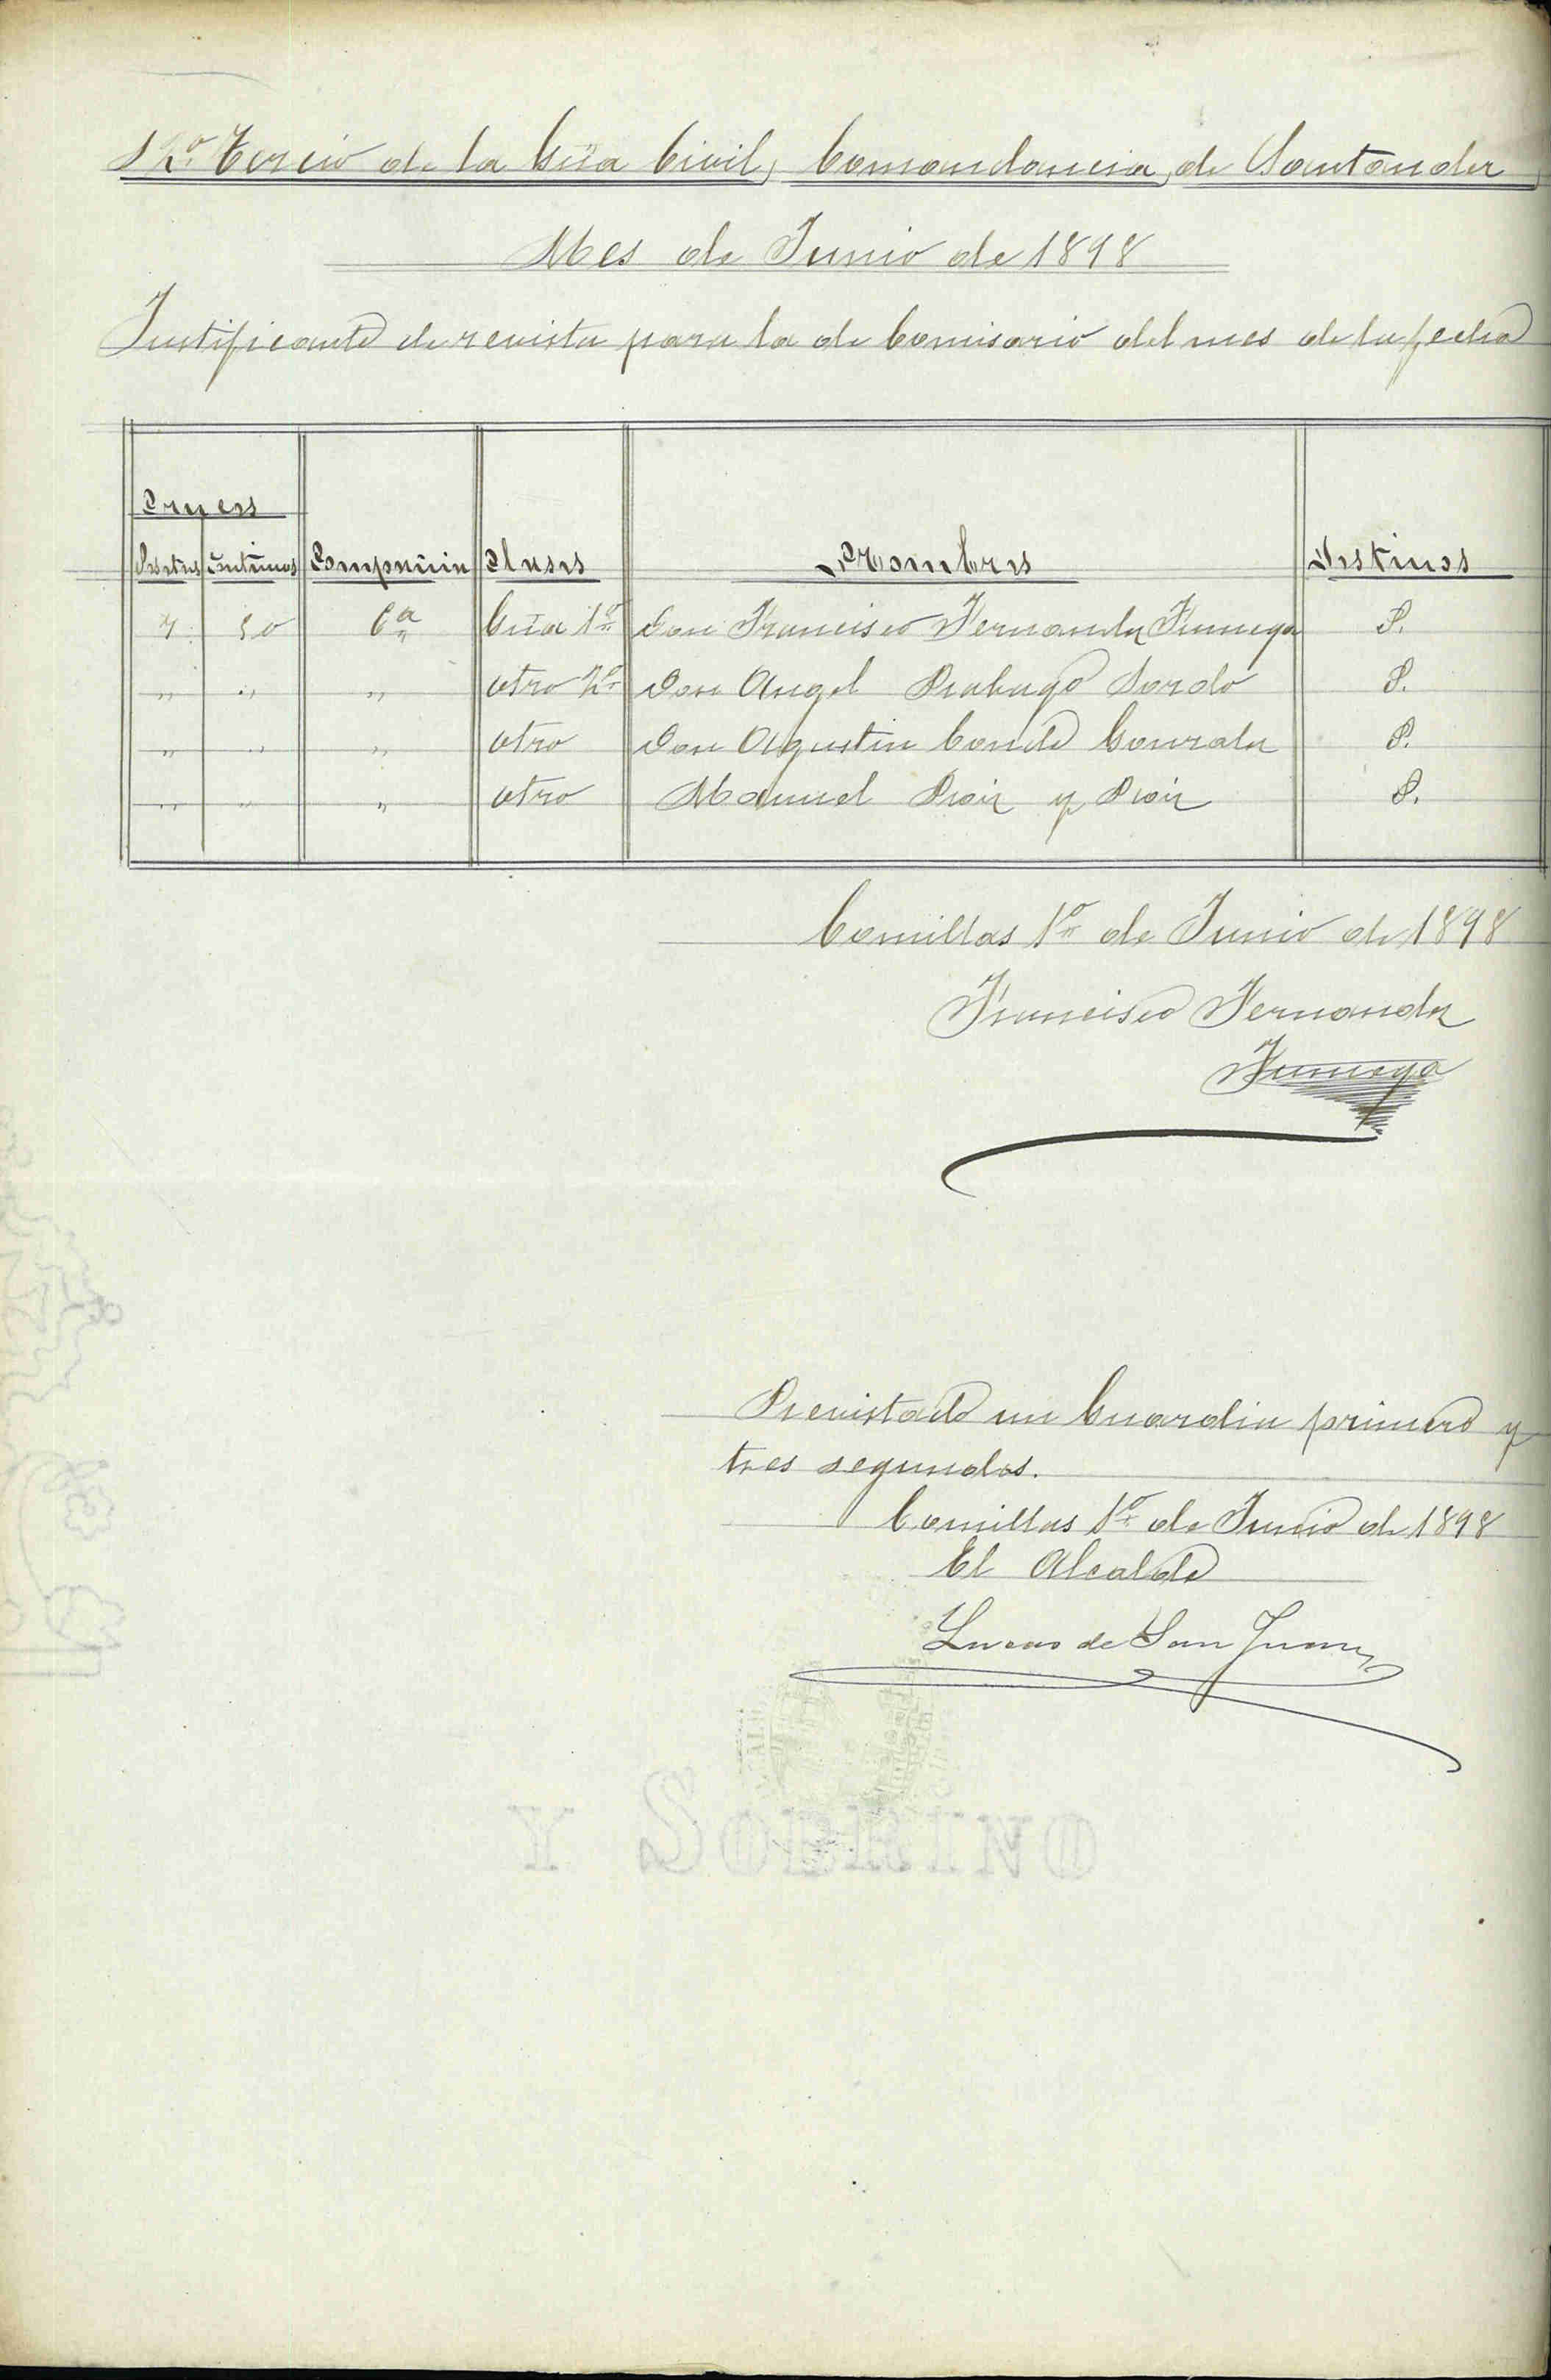 12.º Tercio de la Gúa Civil, Comandancia de Santander
Mes de Junio de 1898
Justificante de revista para la de Comisario del mes de la fecha
Cruces
Pesetas Centimos Compañia Clases Nombres Destinos
7 50 6.ª Gúa 1.º Don Francisco Fernandez Fumega P.
" " " otro 2.º Don Angel Rabago Sordo P.
" " " otro Don Agustin Conde Gonzalez P.
" " " otro Manuel Roiz y Roiz P.
Comillas 1.º de Junio de 1898
Francisco Fernandez
Fumega
Revistado un Guardia primero y
tres segundos.
Comillas 1.º de Junio de 1898
El Alcalde
Lucas de San Juan
Y SOBRINO